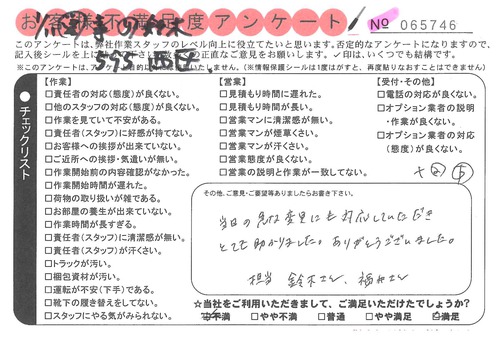 お客様不満足度アンケート
No 065746
このアンケートは、弊社作業スタッフのレベル向上に役立てたいと思います。否定的なアンケートになりますので、
※このアンケートは、
(※情報保護シールは1度はがすと、再度貼りなおすことはできません)
チェックリスト
【作業】
□責任者の対応(態度)が良くない。
□他のスタッフの対応(態度)が良くない。
□作業を見ていて不安がある。
□責任者(スタッフ)に好感が持てない。
□お客様への挨拶が出来ていない。
□ご近所への挨拶・気遣いが無い。
□作業開始前の内容確認がなかった。
□作業開始時間が遅れた。
□荷物の取り扱いが雑である。
□お部屋の養生が出来ていない。
□作業時間が長すぎる。
□責任者(スタッフ)に清潔感が無い。
□責任者(スタッフ)が汗くさい。
□トラックが汚い。
□梱包資材が汚い。
□運転が不安(下手)である。
□靴下の履き替えをしてない。
□スタッフにやる気がみられない。
【営業】
□見積もり時間に遅れた。
□見積もり時間が長い。
□営業マンに清潔感が無い。
□営業マンが煙草くさい。
□営業マンが汗くさい。
□営業態度が良くない。
□営業の説明と作業が一致してない。
【受付・その他】
□電話の対応が良くない。
□オプション業者の説明
・作業が良くない。
□オプション業者の対応
(態度)が良くない。
その他、ご意見・ご要望等ありましたらお書き下さい。
当日の急な変更にも対応していただき
とても助かりました。ありがとうございました。
担当 鈴木さん、福井さん
☆当社をご利用いただきまして、ご満足いただけたでしょうか?
□不満 □やや不満 □普通 □やや満足 □満足